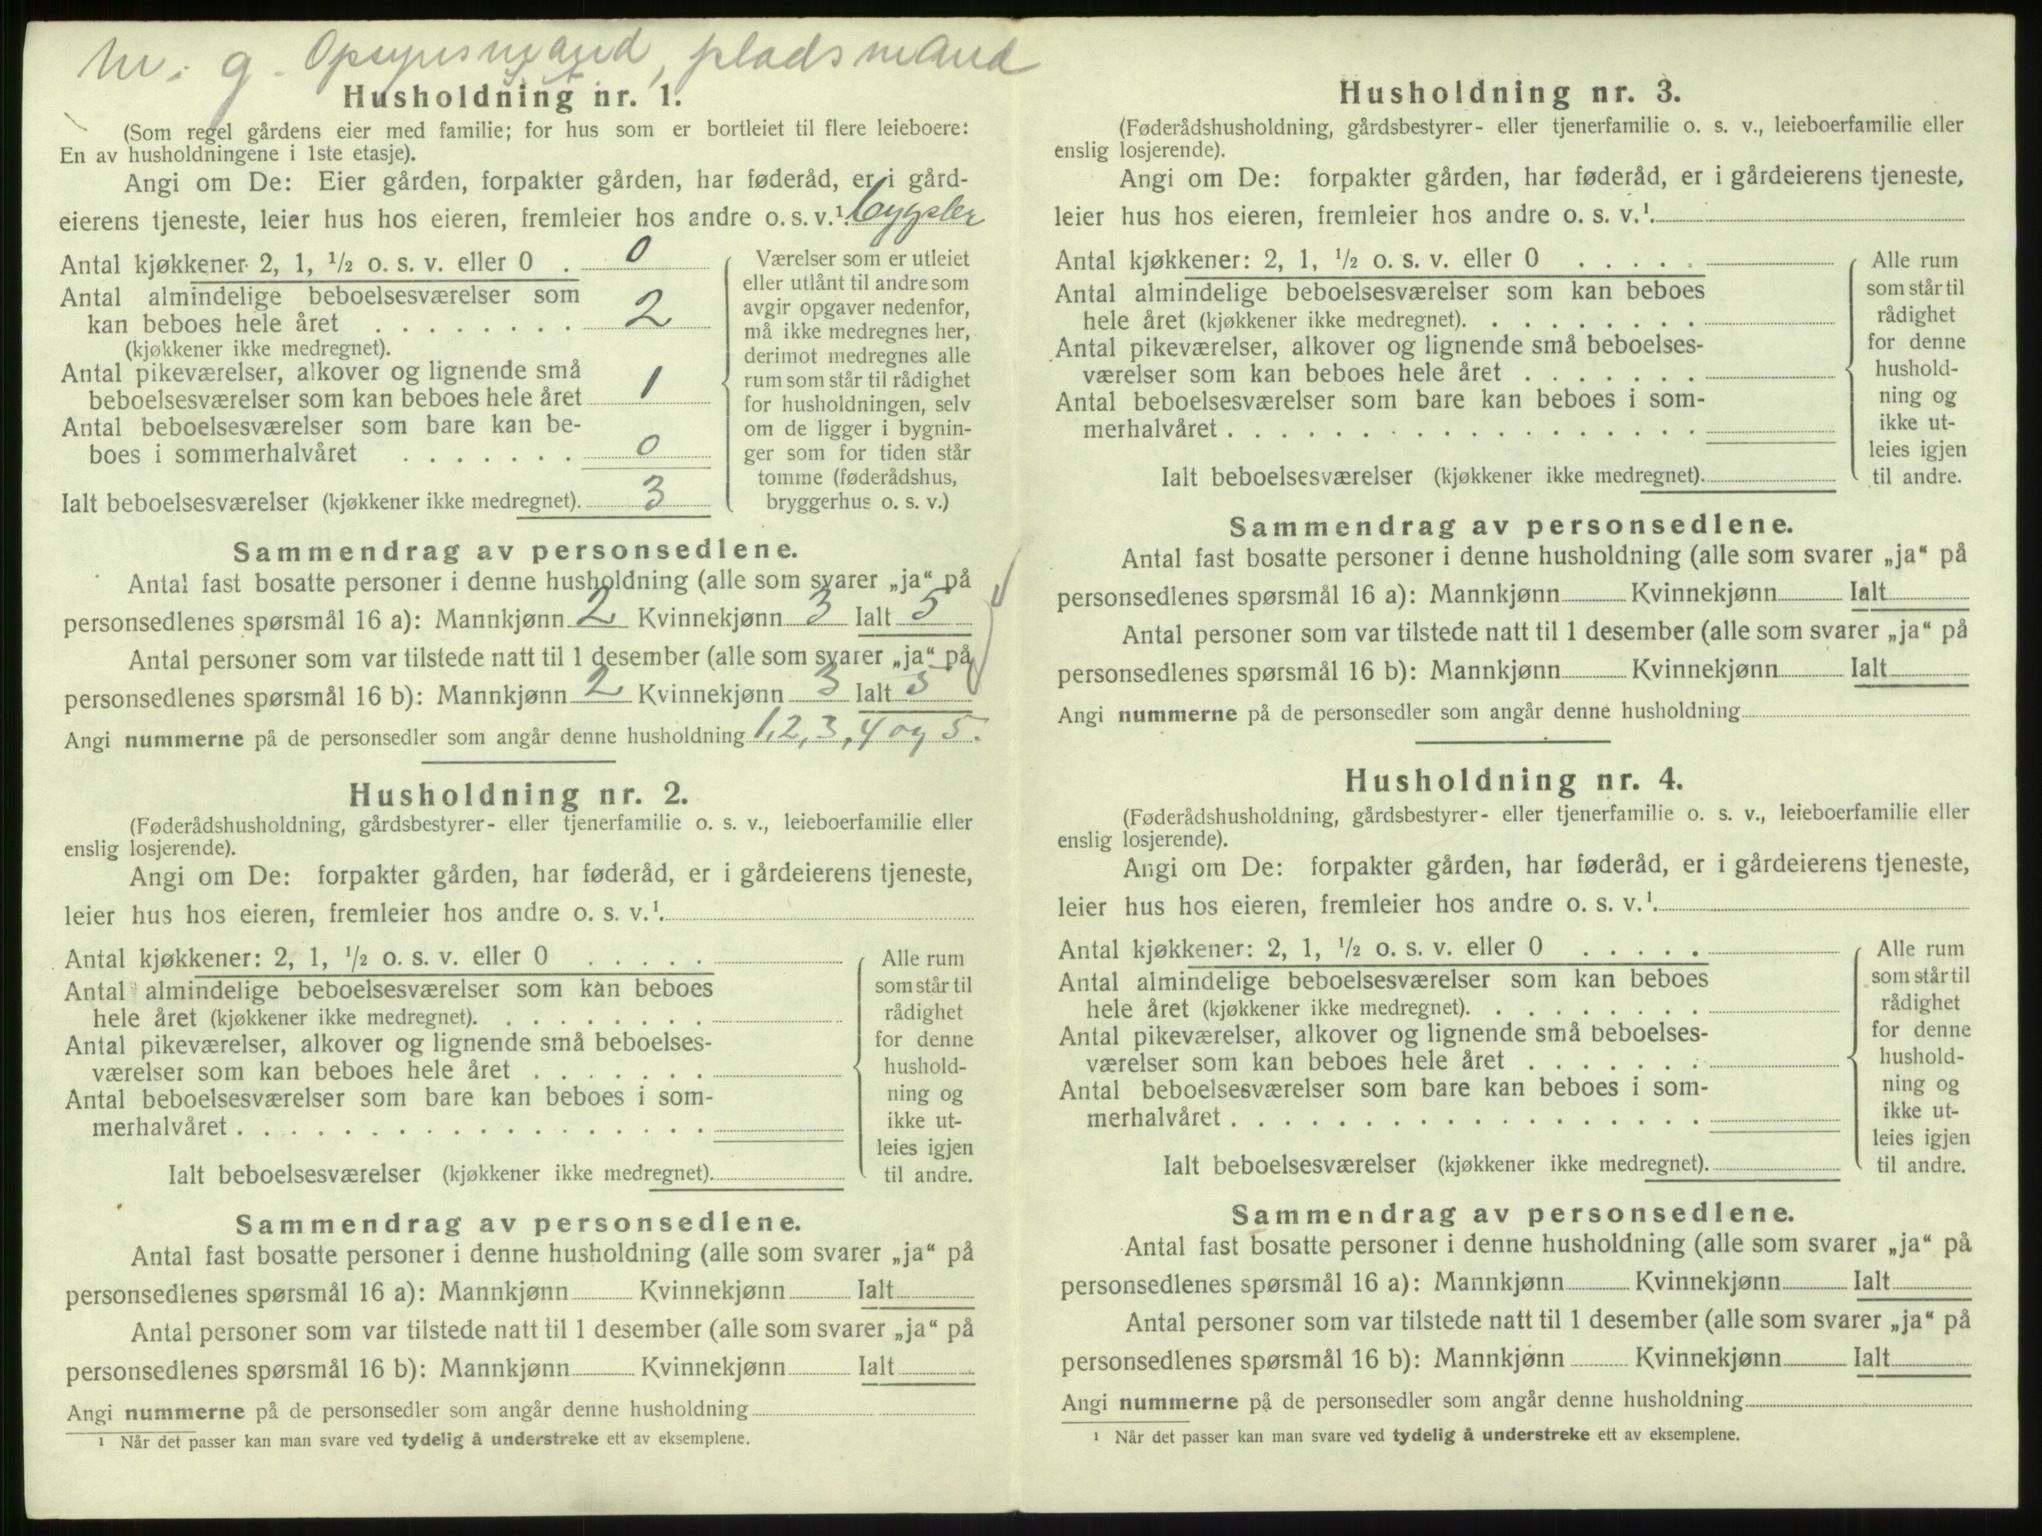 m. g. Opsynsmand, pladsmand
Husholdning nr. 1.
(Som regel gårdens eier med familie; for hus som er bortleiet til flere leieboere:
En av husholdningene i 1ste etasje).
Angi om De: Eier gården, forpakter gården, har føderåd, er i gård-
eierens tjeneste, leier hus hos eieren, fremleier hos andre o. s. v.¹ bygsler
Antal kjøkkener 2, 1, ½ o. s. v. eller 0 . 0
Antal almindelige beboelsesværelser som
kan beboes hele året . . . . . . . . 2
(kjøkkener ikke medregnet).
Antal pikeværelser, alkover og lignende små
beboelsesværelser som kan beboes hele året 1
Antal beboelsesværelser som bare kan be-
boes i sommerhalvåret . . . . . . . 0
Ialt beboelsesværelser (kjøkkener ikke medregnet). 3
Værelser som er utleiet
eller utlånt til andre som
avgir opgaver nedenfor,
må ikke medregnes her,
derimot medregnes alle
rum som står til rådighet
for husholdningen, selv
om de ligger i bygnin-
ger som for tiden står
tomme (føderådshus,
bryggerhus o. s. v.)
Sammendrag av personsedlene.
Antal fast bosatte personer i denne husholdning (alle som svarer „ja“ på
personsedlenes spørsmål 16 a): Mannkjønn 2 Kvinnekjønn 3 Ialt 5
Antal personer som var tilstede natt til 1 desember (alle som svarer „ja“ på
personsedlenes spørsmål 16 b): Mannkjønn 2 Kvinnekjønn 3 Ialt 5
Angi nummerne på de personsedler som angår denne husholdning 1, 2, 3, 4 og 5.
Husholdning nr. 2.
(Føderådshusholdning, gårdsbestyrer- eller tjenerfamilie o. s. v., leieboerfamilie eller
enslig losjerende).
Angi om De: forpakter gården, har føderåd, er i gårdeierens tjeneste,
leier hus hos eieren, fremleier hos andre o. s. v.¹
Antal kjøkkener: 2, 1, ½ o. s. v. eller 0 . . . . .
Antal almindelige beboelsesværelser som kan beboes
hele året (kjøkkener ikke medregnet). . . . . . . . .
Antal pikeværelser, alkover og lignende små beboelses-
værelser som kan beboes hele året . . . . . . .
Antal beboelsesværelser som bare kan beboes i som-
merhalvåret . . . . . . . . . . . . . . . . . .
Ialt beboelsesværelser (kjøkkener ikke medregnet).
Alle rum
som står til
rådighet
for denne
hushold-
ning og
ikke ut-
leies igjen
til andre.
Sammendrag av personsedlene.
Antal fast bosatte personer i denne husholdning (alle som svarer „ja“ på
personsedlenes spørsmål 16 a): Mannkjønn Kvinnekjønn Ialt
Antal personer som var tilstede natt til 1 desember (alle som svarer „ja“ på
personsedlenes spørsmål 16 b): Mannkjønn Kvinnekjønn Ialt
Angi nummerne på de personsedler som angår denne husholdning
¹ Når det passer kan man svare ved tydelig å understreke ett av eksemplene.
Husholdning nr. 3.
(Føderådshusholdning, gårdsbestyrer- eller tjenerfamilie o. s. v., leieboerfamilie eller
enslig losjerende).
Angi om De: forpakter gården, har føderåd, er i gårdeierens tjeneste,
leier hus hos eieren, fremleier hos andre o. s. v.¹
Antal kjøkkener: 2, 1, ½ o. s. v. eller 0 . . . . .
Antal almindelige beboelsesværelser som kan beboes
hele året (kjøkkener ikke medregnet). . . . . . . . .
Antal pikeværelser, alkover og lignende små beboelses-
værelser som kan beboes hele året . . . . . . .
Antal beboelsesværelser som bare kan beboes i som-
merhalvåret . . . . . . . . . . . . . . . . . .
Ialt beboelsesværelser (kjøkkener ikke medregnet).
Alle rum
som står til
rådighet
for denne
hushold-
ning og
ikke ut-
leies igjen
til andre.
Sammendrag av personsedlene.
Antal fast bosatte personer i denne husholdning (alle som svarer „ja“ på
personsedlenes spørsmål 16 a): Mannkjønn Kvinnekjønn Ialt
Antal personer som var tilstede natt til 1 desember (alle som svarer „ja“ på
personsedlenes spørsmål 16 b): Mannkjønn Kvinnekjønn Ialt
Angi nummerne på de personsedler som angår denne husholdning
Husholdning nr. 4.
(Føderådshusholdning, gårdsbestyrer- eller tjenerfamilie o. s. v., leieboerfamilie eller
enslig losjerende).
Angi om De: forpakter gården, har føderåd, er i gårdeierens tjeneste,
leier hus hos eieren, fremleier hos andre o. s. v.¹
Antal kjøkkener: 2, 1, ½ o. s. v. eller 0 . . . . .
Antal almindelige beboelsesværelser som kan beboes
hele året (kjøkkener ikke medregnet). . . . . . . . .
Antal pikeværelser, alkover og lignende små beboelses-
værelser som kan beboes hele året . . . . . . .
Antal beboelsesværelser som bare kan beboes i som-
merhalvåret . . . . . . . . . . . . . . . . . .
Ialt beboelsesværelser (kjøkkener ikke medregnet).
Alle rum
som står til
rådighet
for denne
hushold-
ning og
ikke ut-
leies igjen
til andre.
Sammendrag av personsedlene.
Antal fast bosatte personer i denne husholdning (alle som svarer „ja“ på
personsedlenes spørsmål 16 a): Mannkjønn Kvinnekjønn Ialt
Antal personer som var tilstede natt til 1 desember (alle som svarer „ja“ på
personsedlenes spørsmål 16 b): Mannkjønn Kvinnekjønn Ialt
Angi nummerne på de personsedler som angår denne husholdning
¹ Når det passer kan man svare ved tydelig å understreke ett av eksemplene.